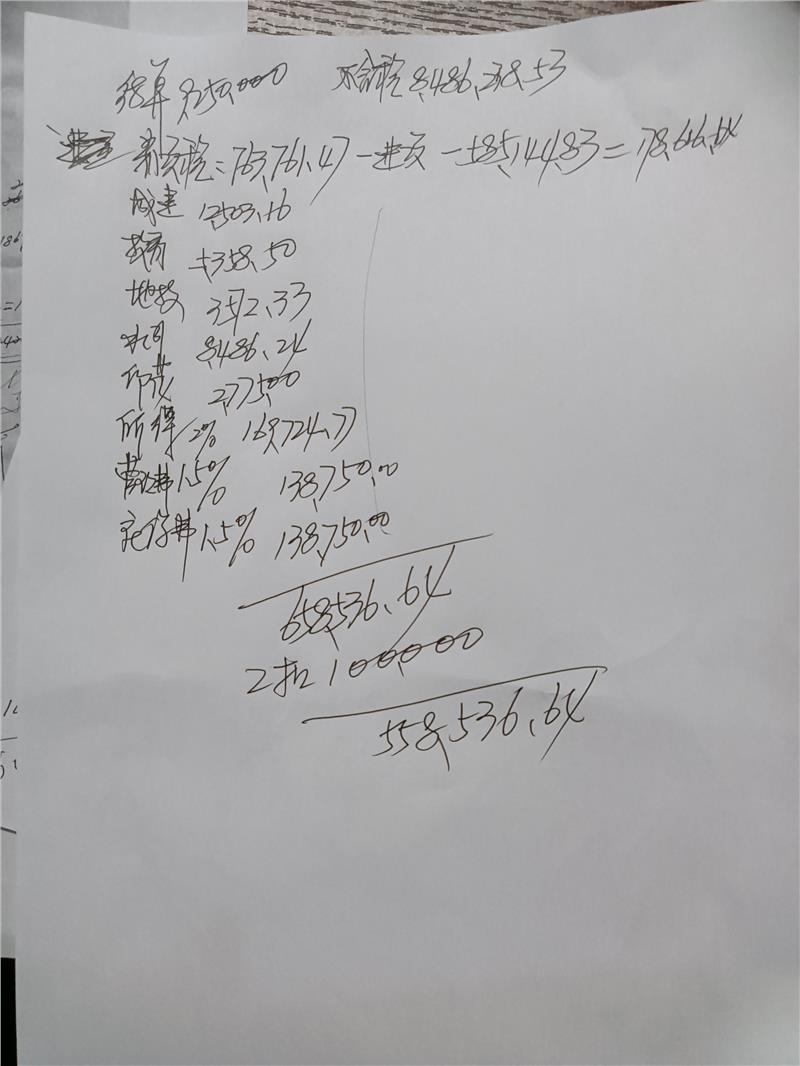 结算 9,250,000 不含税 8,486,238.53
销项税=763,761.47-进项-585,144.83=178,616.64
城建 12,503.16
教育 5,358.50
地教 3,572.33
水利 8,486.24
印花 2,775.00
所得 2% 169,724.77
费 1.5% 138,750.00
费 1.5% 138,750.00
658,536.64
已扣 100,000.00
558,536.64